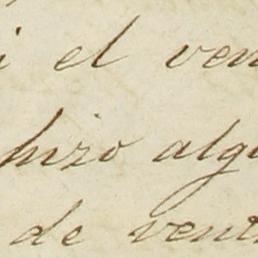 i el ven
hizo algu
de vent